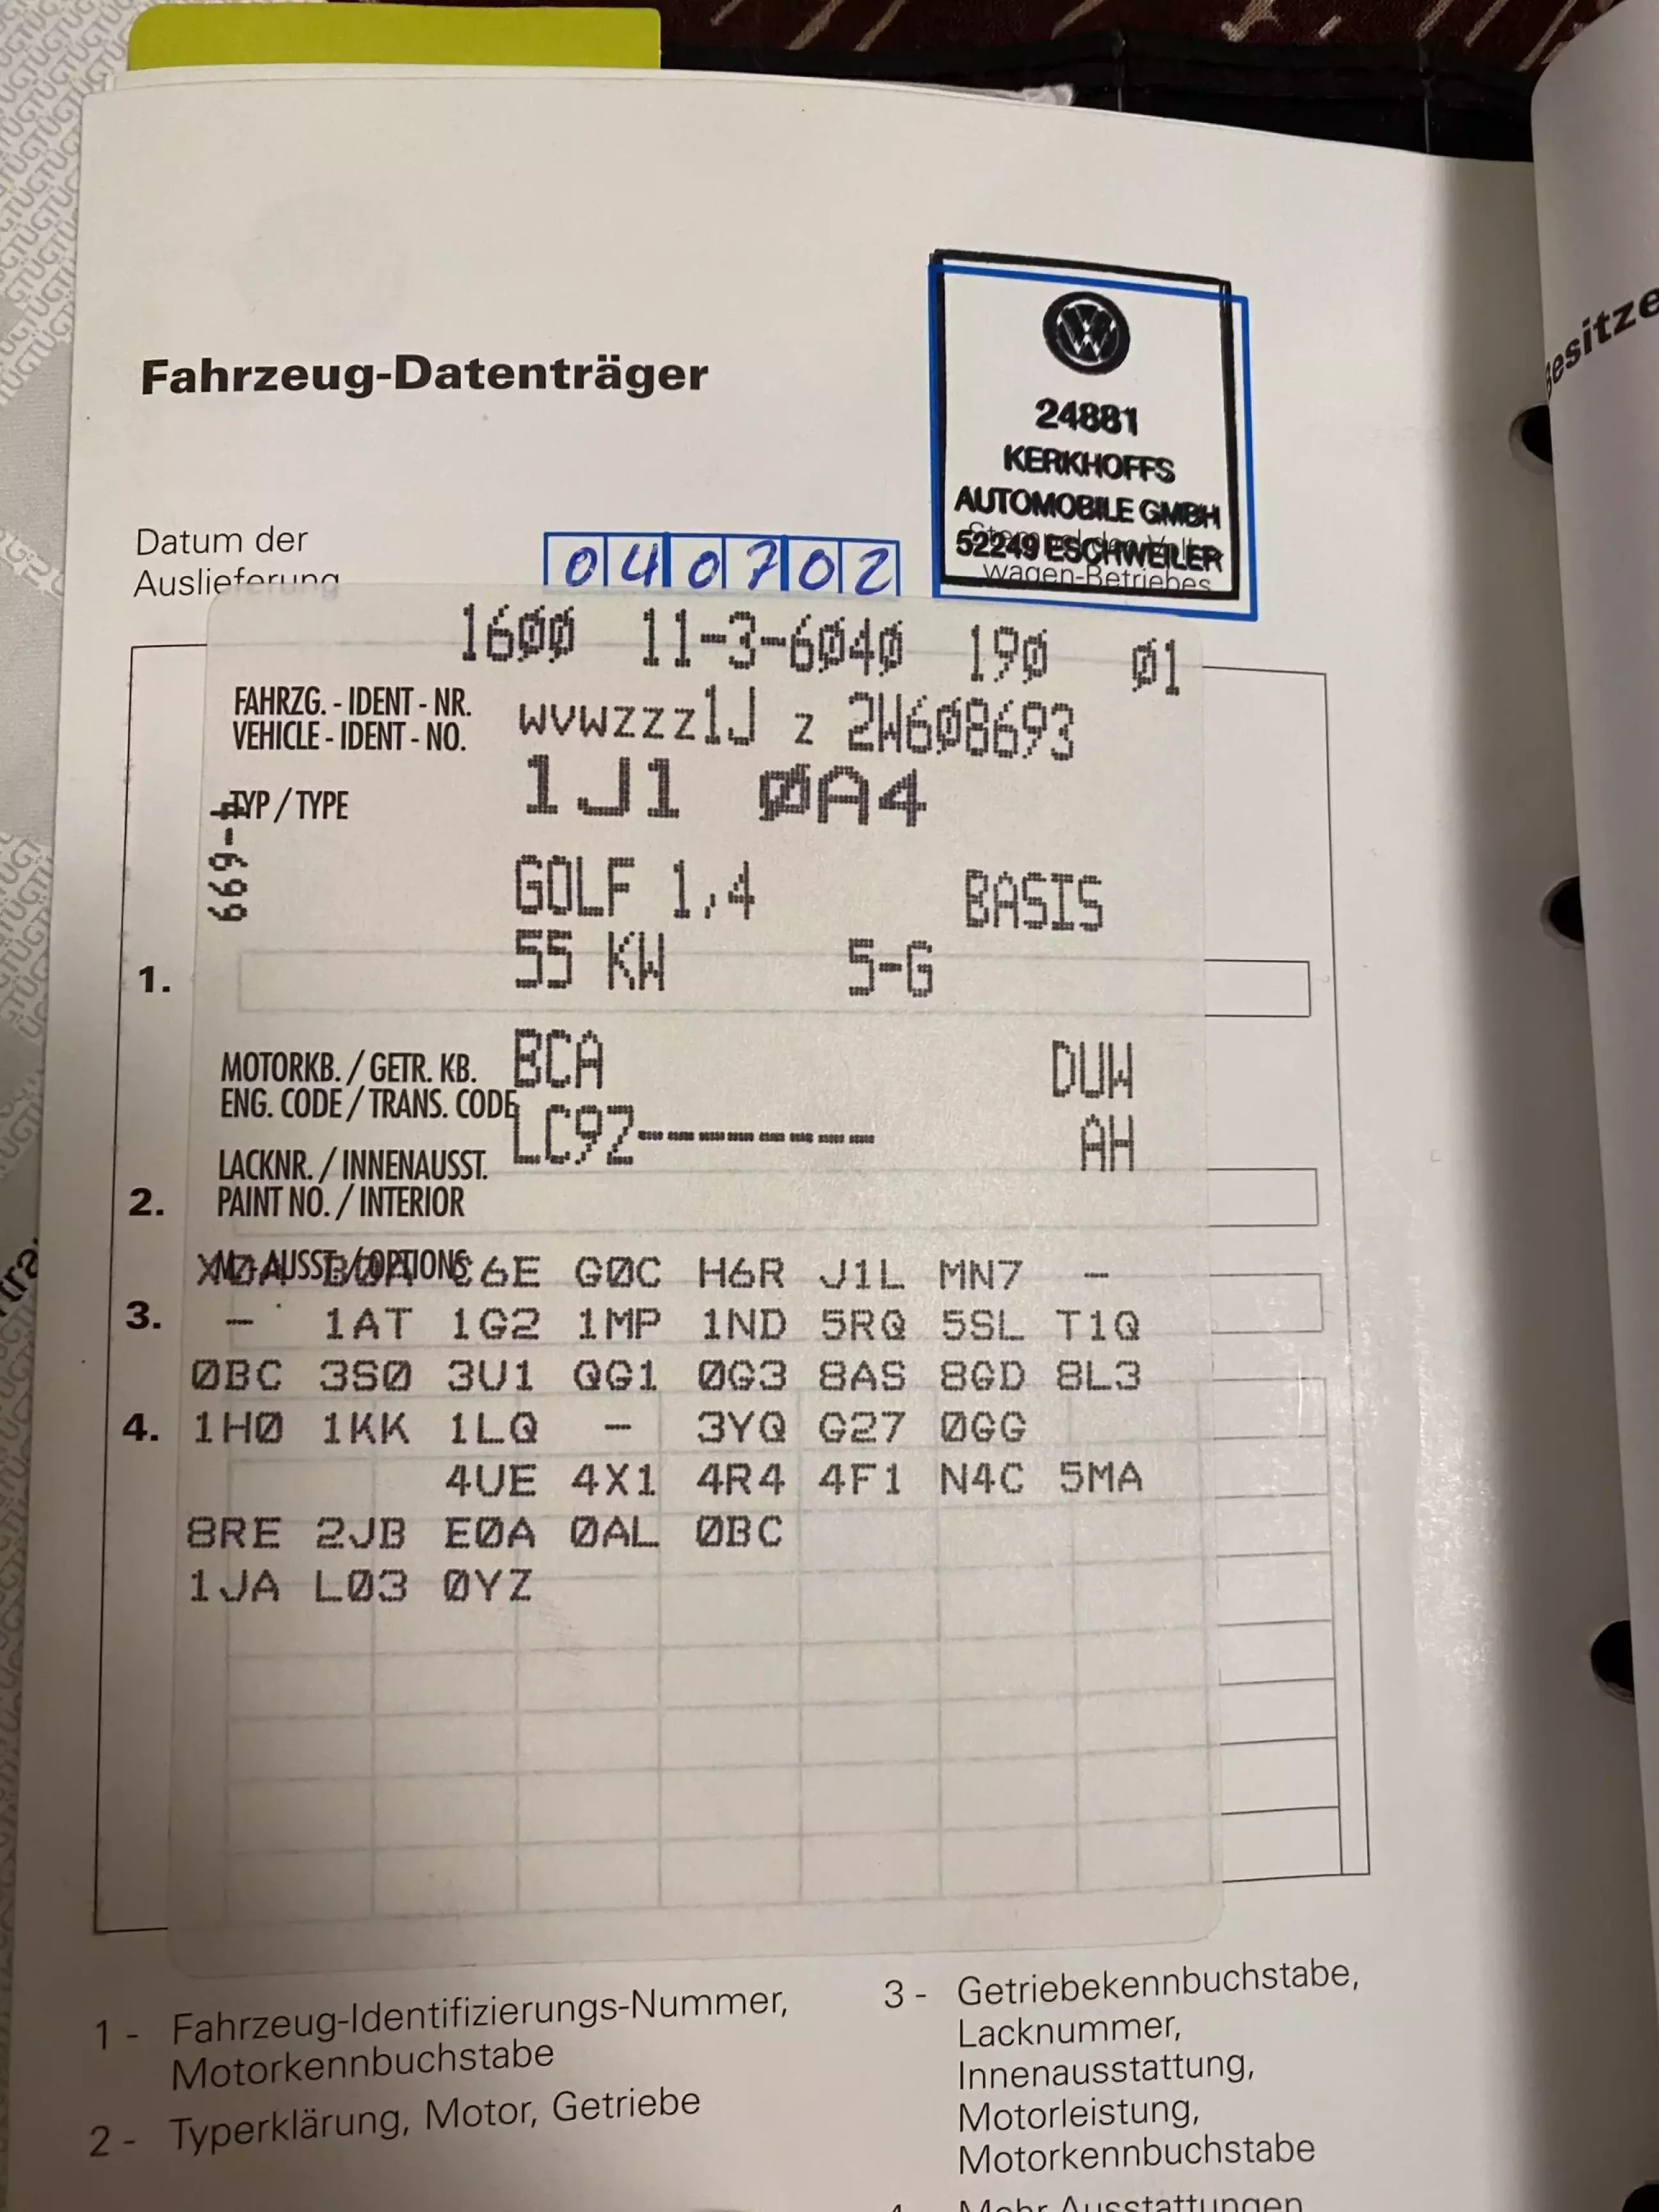 Fahrzeug-Datenträger
24881
KERKHOFFS
AUTOMOBILE GMBH
52249 ESCHWEILER
wagen-Betriebes
Datum der
Auslieferung
040702
1600 11-3-6040 190 01
FAHRZG. - IDENT - NR.
VEHICLE - IDENT - NO.
WVWZZZ1J Z 2W608693
TYP / TYPE
1J1 0A4
669-
GOLF 1,4 BASIS
55 KW 5-G
1.
MOTORKB. / GETR. KB.
ENG. CODE / TRANS. CODE
BCA DUW
LC9Z-------- AH
LACKNR. / INNENAUSST.
PAINT NO. / INTERIOR
2.
M - AUSST. / OPTIONS
C6E G0C H6R J1L MN7 -
3.
- 1AT 1G2 1MP 1ND 5RQ 5SL T1Q
0BC 3S0 3U1 QG1 0G3 8AS 8GD 8L3
4.
1H0 1KK 1LQ - 3YQ G27 0GG
4UE 4X1 4R4 4F1 N4C 5MA
8RE 2JB E0A 0AL 0BC
1JA L03 0YZ
1 - Fahrzeug-Identifizierungs-Nummer,
Motorkennbuchstabe
2 - Typerklärung, Motor, Getriebe
3 - Getriebekennbuchstabe,
Lacknummer,
Innenausstattung,
Motorleistung,
Motorkennbuchstabe
Mehr Ausstattungen